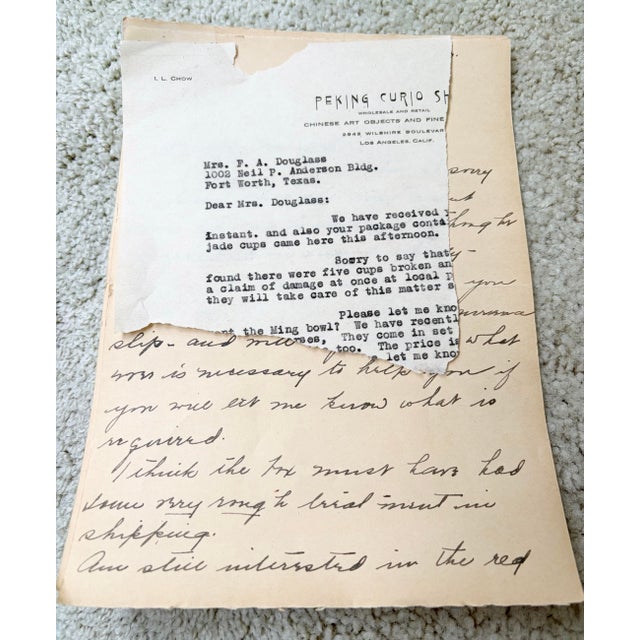 I. L. CHOW
PEKING CURIO SH
WHOLESALE AND RETAIL
CHINESE ART OBJECTS AND FINE
2942 WILSHIRE BOULEVAR
LOS ANGELES, CALIF.
Mrs. F. A. Douglass
1002 Neil P. Anderson Bldg.
Fort Worth, Texas.
Dear Mrs. Douglass:
We have received
instant. and also your package contai
jade cups came here this afternoon.
Sorry to say that
found there were five cups broken an
a claim of damage at once at local p
they will take care of this matter s
Please let me kno
the Ming bowl? We have recentl
They come in set
too. The price is
let me kno
sorry
you
slip - and will what
is necessary to help you if
you will let me know what is
required.
I think the box must have had
some very rough treatment in
shipping.
Am still interested in the red